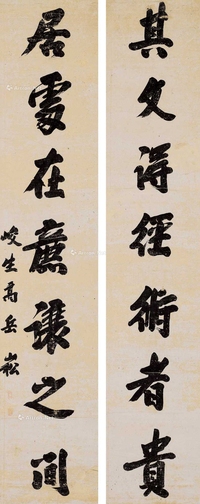 其文得經術者貴
居處在廉讓之間
峻生高岳崧